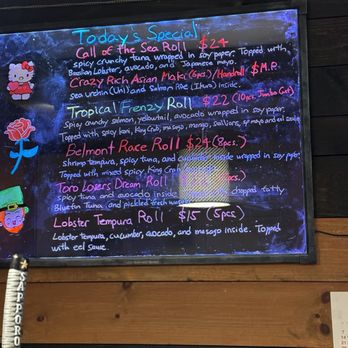 Today's Special
Call of the Sea Roll $24
spicy crunchy tuna wrapped in soy paper. Topped with
Brazilian Lobster, avocado, and Japanese mayo.
Crazy Rich Asian Maki (6pcs)/Handroll $M.P.
sea urchin (Uni) and Salmon Roe (Ikura) inside.
Tropical Frenzy Roll $22 (10pc, Jumbo Cut)
Spicy crunchy salmon, yellowtail, avocado wrapped in soy paper.
Topped with spicy kani, King Crab, masago, mango, scallions, and eel sauce
Belmont Race Roll $24 (8pcs.)
Shrimp tempura, spicy tuna, and cucumber inside wrapped in soy paper.
Topped with mixed spicy King Crab
Toro Lovers Dream Roll pcs.)
Spicy tuna and avocado inside chopped fatty
Bluefin Tuna and pickled fresh wasabi
Lobster Tempura Roll $15 (5pcs)
Lobster tempura, cucumber, avocado, and masago inside. Topped
with eel sauce.
SAPPORO